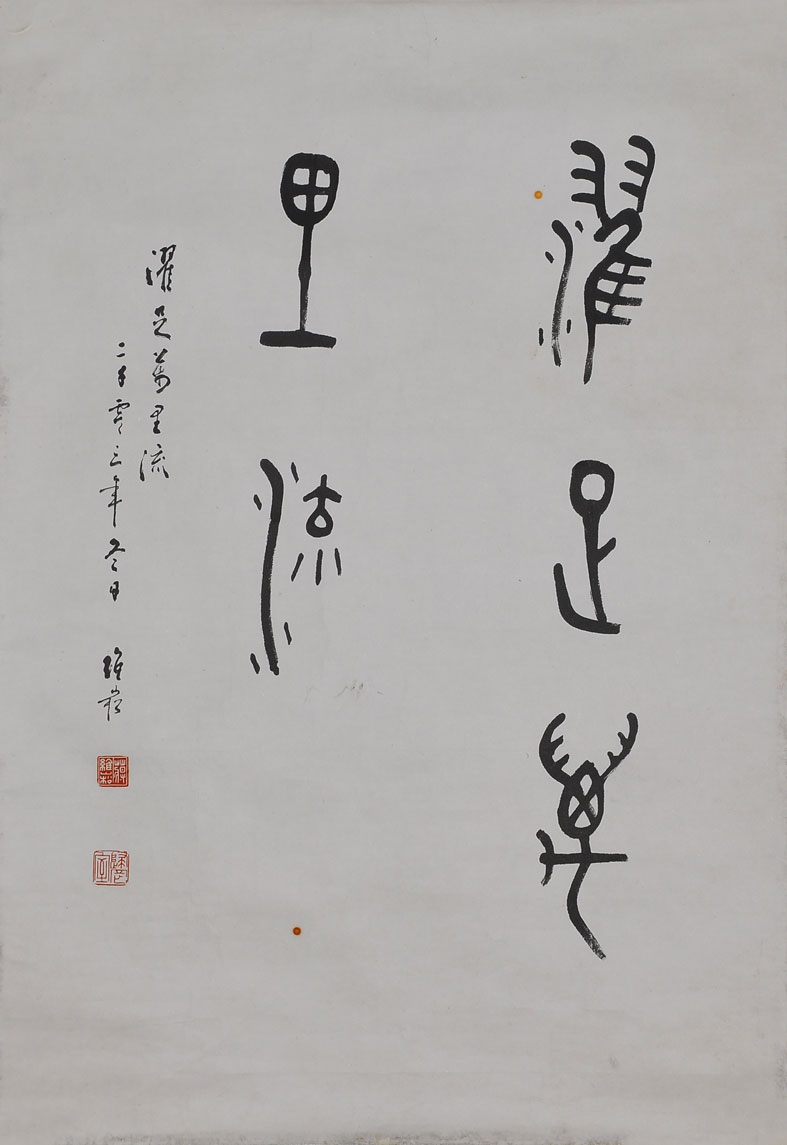 濯足萬
里流
濯足萬里流
二千零三年冬日 維崧